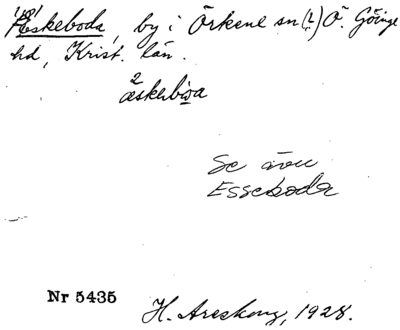 Äskeboda, by i Örkene sn (?) Ö. Göinge
hd, Krist. län.
2
æskebǝa
Se även
Esseboda
Nr 5435
H. Areskoug, 1928.